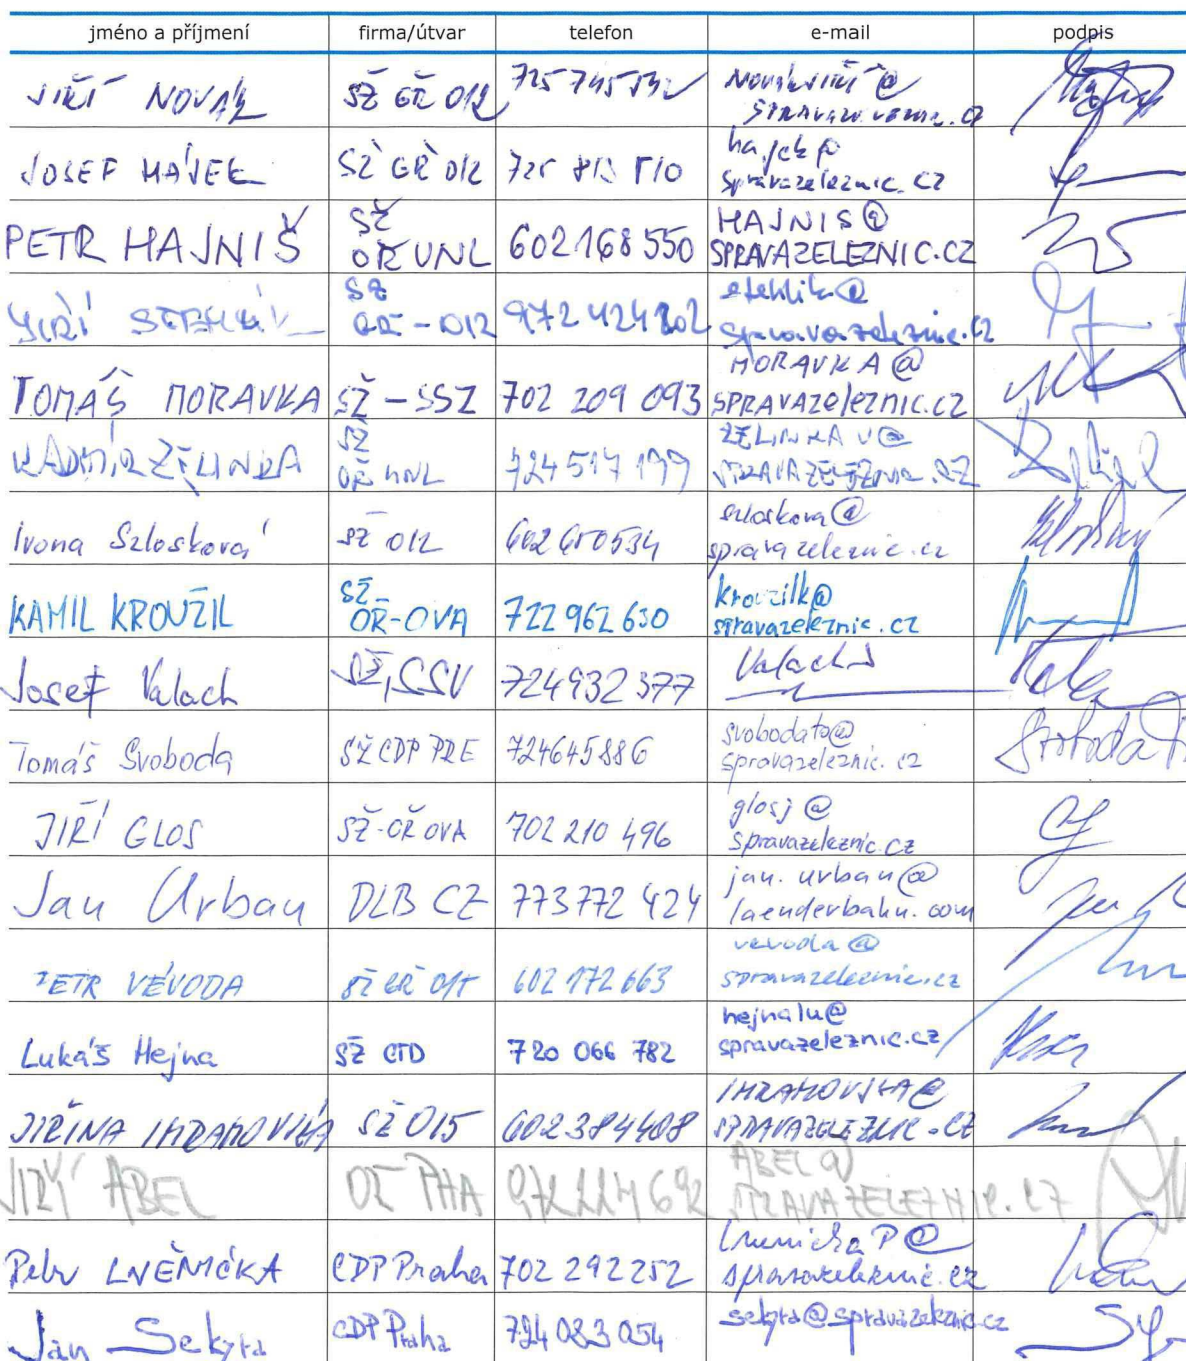 jméno a příjmení firma/útvar telefon e-mail podpis
JIŘÍ NOVÁK SŽ GŘ O12 725 745 542 NOVAKJIRI@
SPRAVAZELEZNIC.CZ
JOSEF HÁJEK SŽ GŘ O12 hajek@
spravazeleznic.cz
PETR HAJNIŠ SŽ
OŘ UNL 602 168 550 HAJNIS@
SPRAVAZELEZNIC.CZ
JIŘÍ STEHLÍK SŽ
GŘ - O12 972 424 202 stehlik@
spravazeleznic.cz
TOMÁŠ MORAVKA SŽ - SSZ 702 209 093 MORAVKA@
SPRAVAZELEZNIC.CZ
ZELINKA SŽ
OŘ UNL 724 517 199 ZELINKAV@
SPRAVAZELEZNIC.CZ
Ivona Szlosková SŽ O12 602 650534 szloskova@
spravazeleznic.cz
KAMIL KROUŽIL SŽ
OŘ-OVA 722 962 630 krouzilk@
spravazeleznic.cz
Josef Valach SŽ, SSV 724932377 ValachJ
Tomáš Svoboda SŽ CDP PRE 724645886 svobodato@
spravazeleznic.cz Svoboda
JIŘÍ GLOS SŽ-OŘ OVA 702 210 496 glosj@
spravazeleznic.cz
Jan Urban DLB CZ 773 772 424 jan.urban@
laenderbahn.com
PETR VÉVODA SŽ GŘ 602 172 663 vevoda@
spravazeleznic.cz
Lukáš Hejna SŽ CTD 720 066 782 hejnalu@
spravazeleznic.cz
JIŘINA IMRAMOVSKÁ SŽ O15 602384408 IMRAMOVSKA@
SPRAVAZELEZNIC.CZ
JIŘÍ ÁBEL OŘ PHA 972 224 692 ABEL@
SPRAVAZELEZNIC.CZ
Petr LNĚNIČKA CDP Praha 702 292252 LnenickaP@
spravazeleznic.cz
Jan Sekyra CDP Praha 724 023 054 sekyra@spravazeleznic.cz